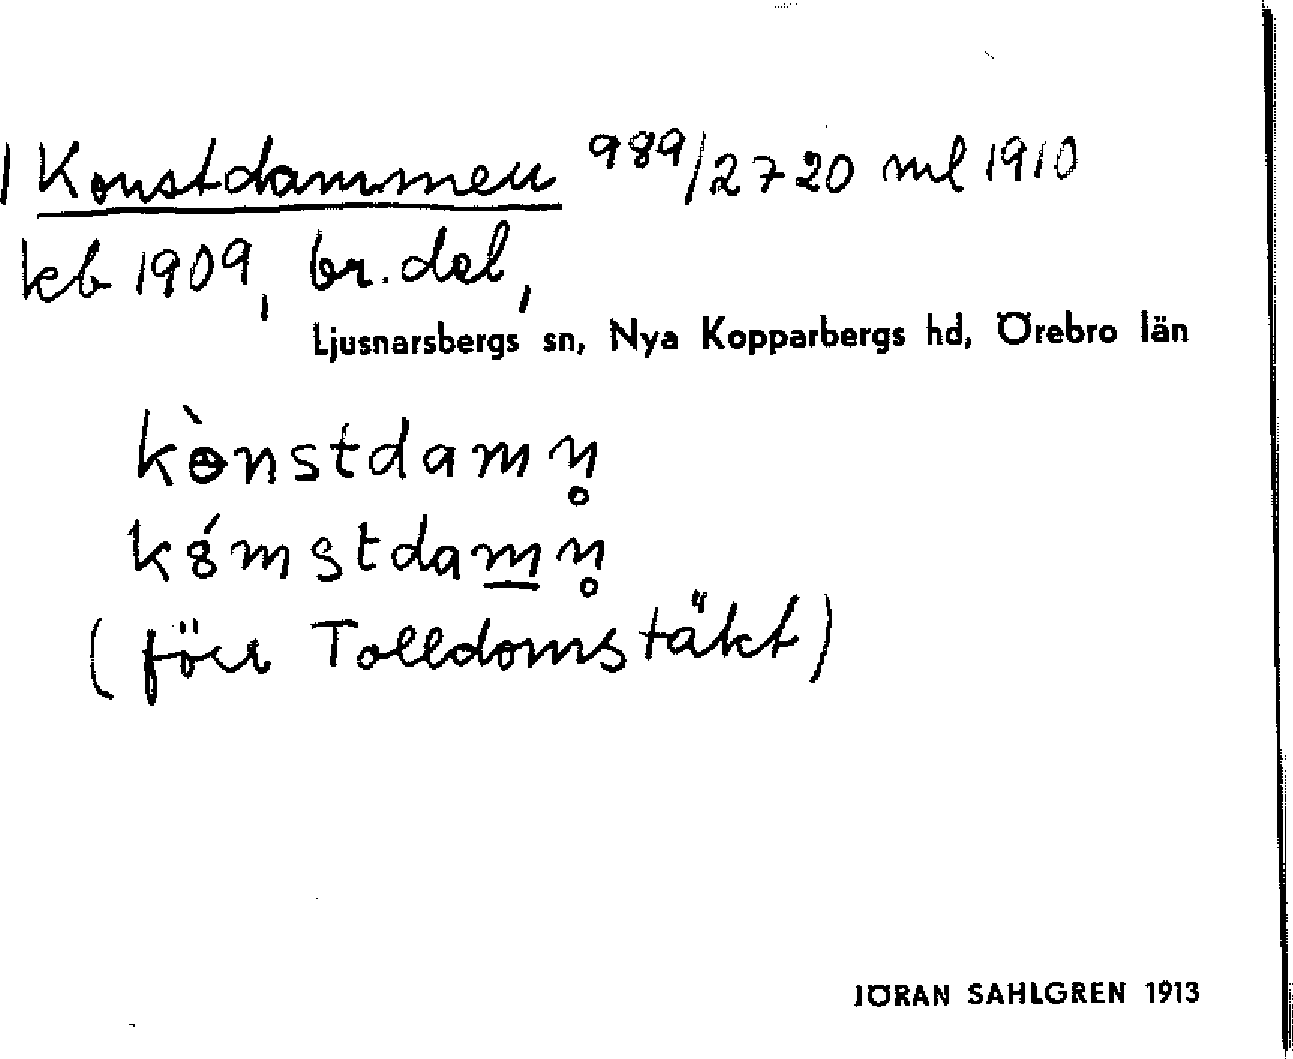 1 Konstdammen 989/2720 ml 1910
kb 1909, br. del,
Ljusnarsbergs sn, Nya Kopparbergs hd, Örebro län
kɵ̀nstdamn̥
k8́mstdam̲n̥
(förr Tolldomstäkt)
JÖRAN SAHLGREN 1913